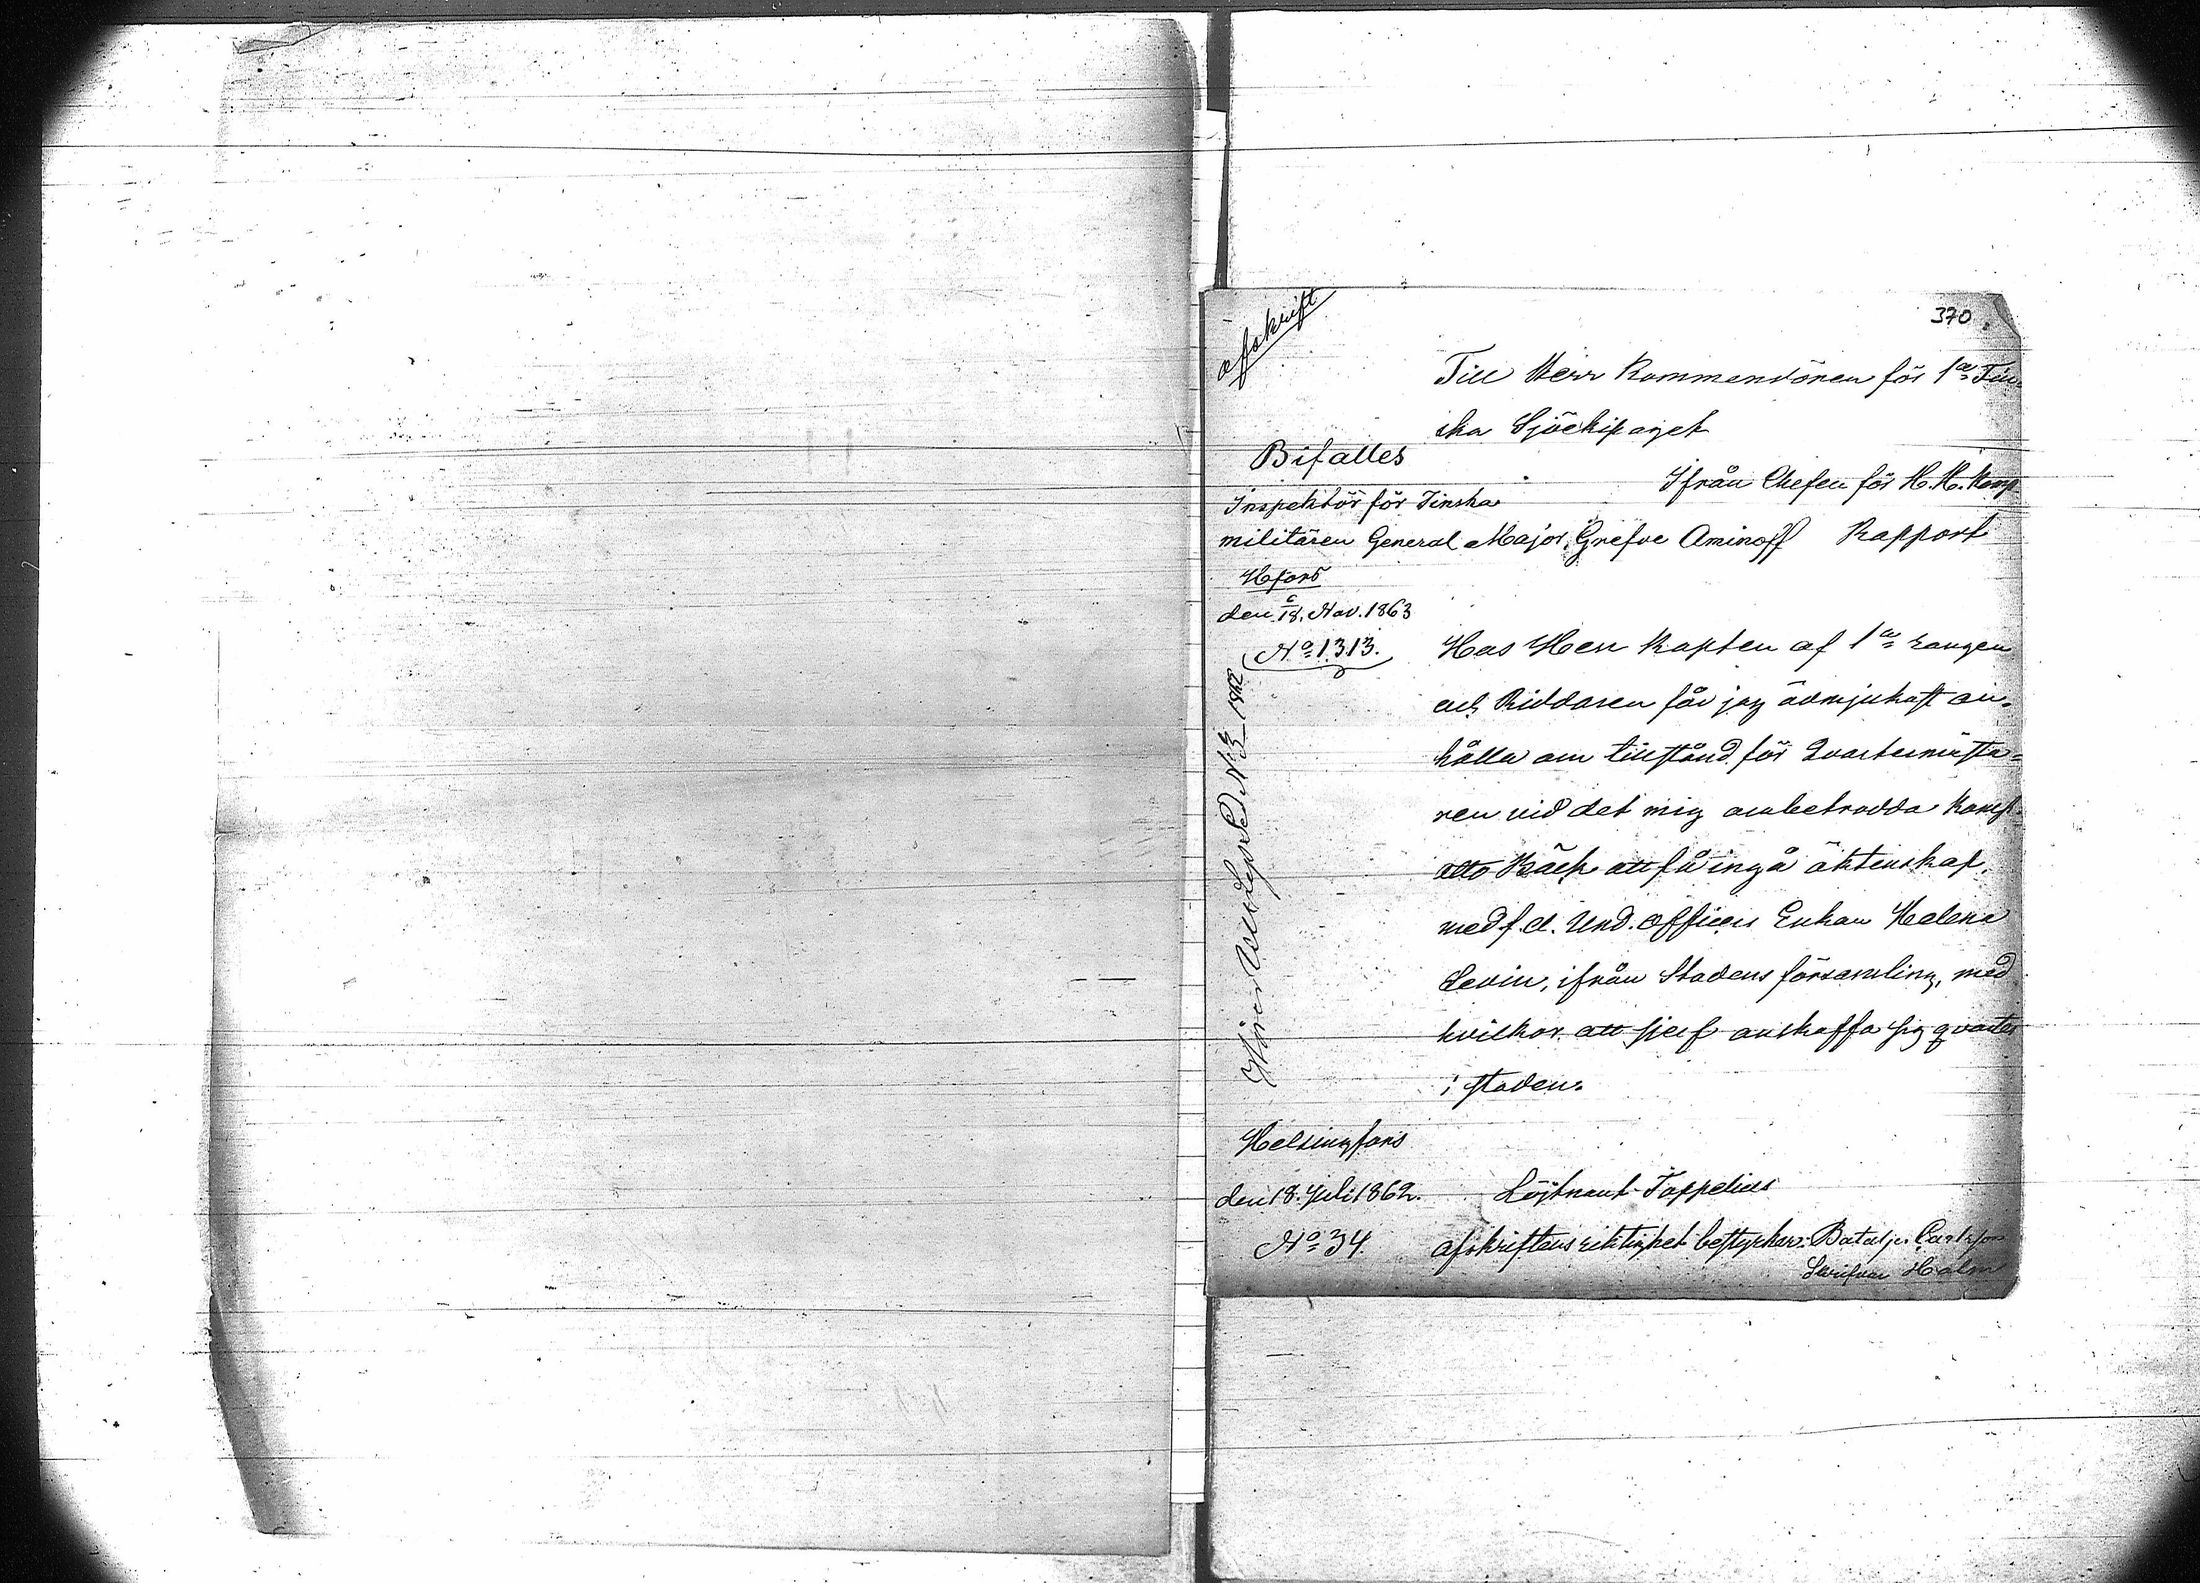 370.
Afskrift
Till Herr Kommendören för 1a Fin-
ska Sjöekipaget
Bifalles
Ifrån Chefen för H. H. Komp
Inspektör för Finska
militären General Major, Grefve Aminoff
Rapport
Hfors
den 6/18. Nov. 1863
No 1313.
Hos Herr Kapten af 1a rangen
och Riddaren får jag ödmjukast an-
hålla om tillstånd för Qvartermästa-
ren vid det mig anbetrodda Komp.
Otto Bäck att få ingå äktenskap,
med f.d. Und. Officers Enkan Helena
Levin, ifrån Stadens församling, med
hvilkor att sjelf anskaffa sig qvarter
i staden.
Helsingfors
den 18. Juli 1862.
Löjtnant Toppelius
No 34.
Afskriftens riktighet bestyrker: Batalj. Carlsson
Skrifvar Holm
1862